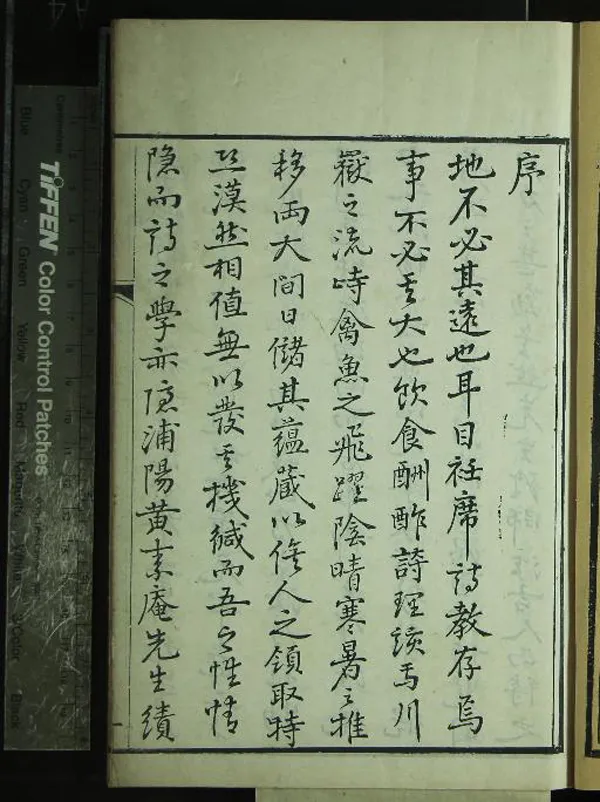 序
地不必其遠也耳目衽席詩教存焉
事不必其大也飲食酬酢詩理該焉川
嶽之流峙禽魚之飛躍陰晴寒暑之推
移兩大間日儲其蘊藏以俟人之領取特
恐漠然相值無以發其機緘而吾之性情
隱而詩之學亦隱浦陽黃素庵先生績
TIFFEN Color Control Patches
Centimetres
Blue
Cyan
Green
Yellow
Red
Magenta
White
3/Color
Black